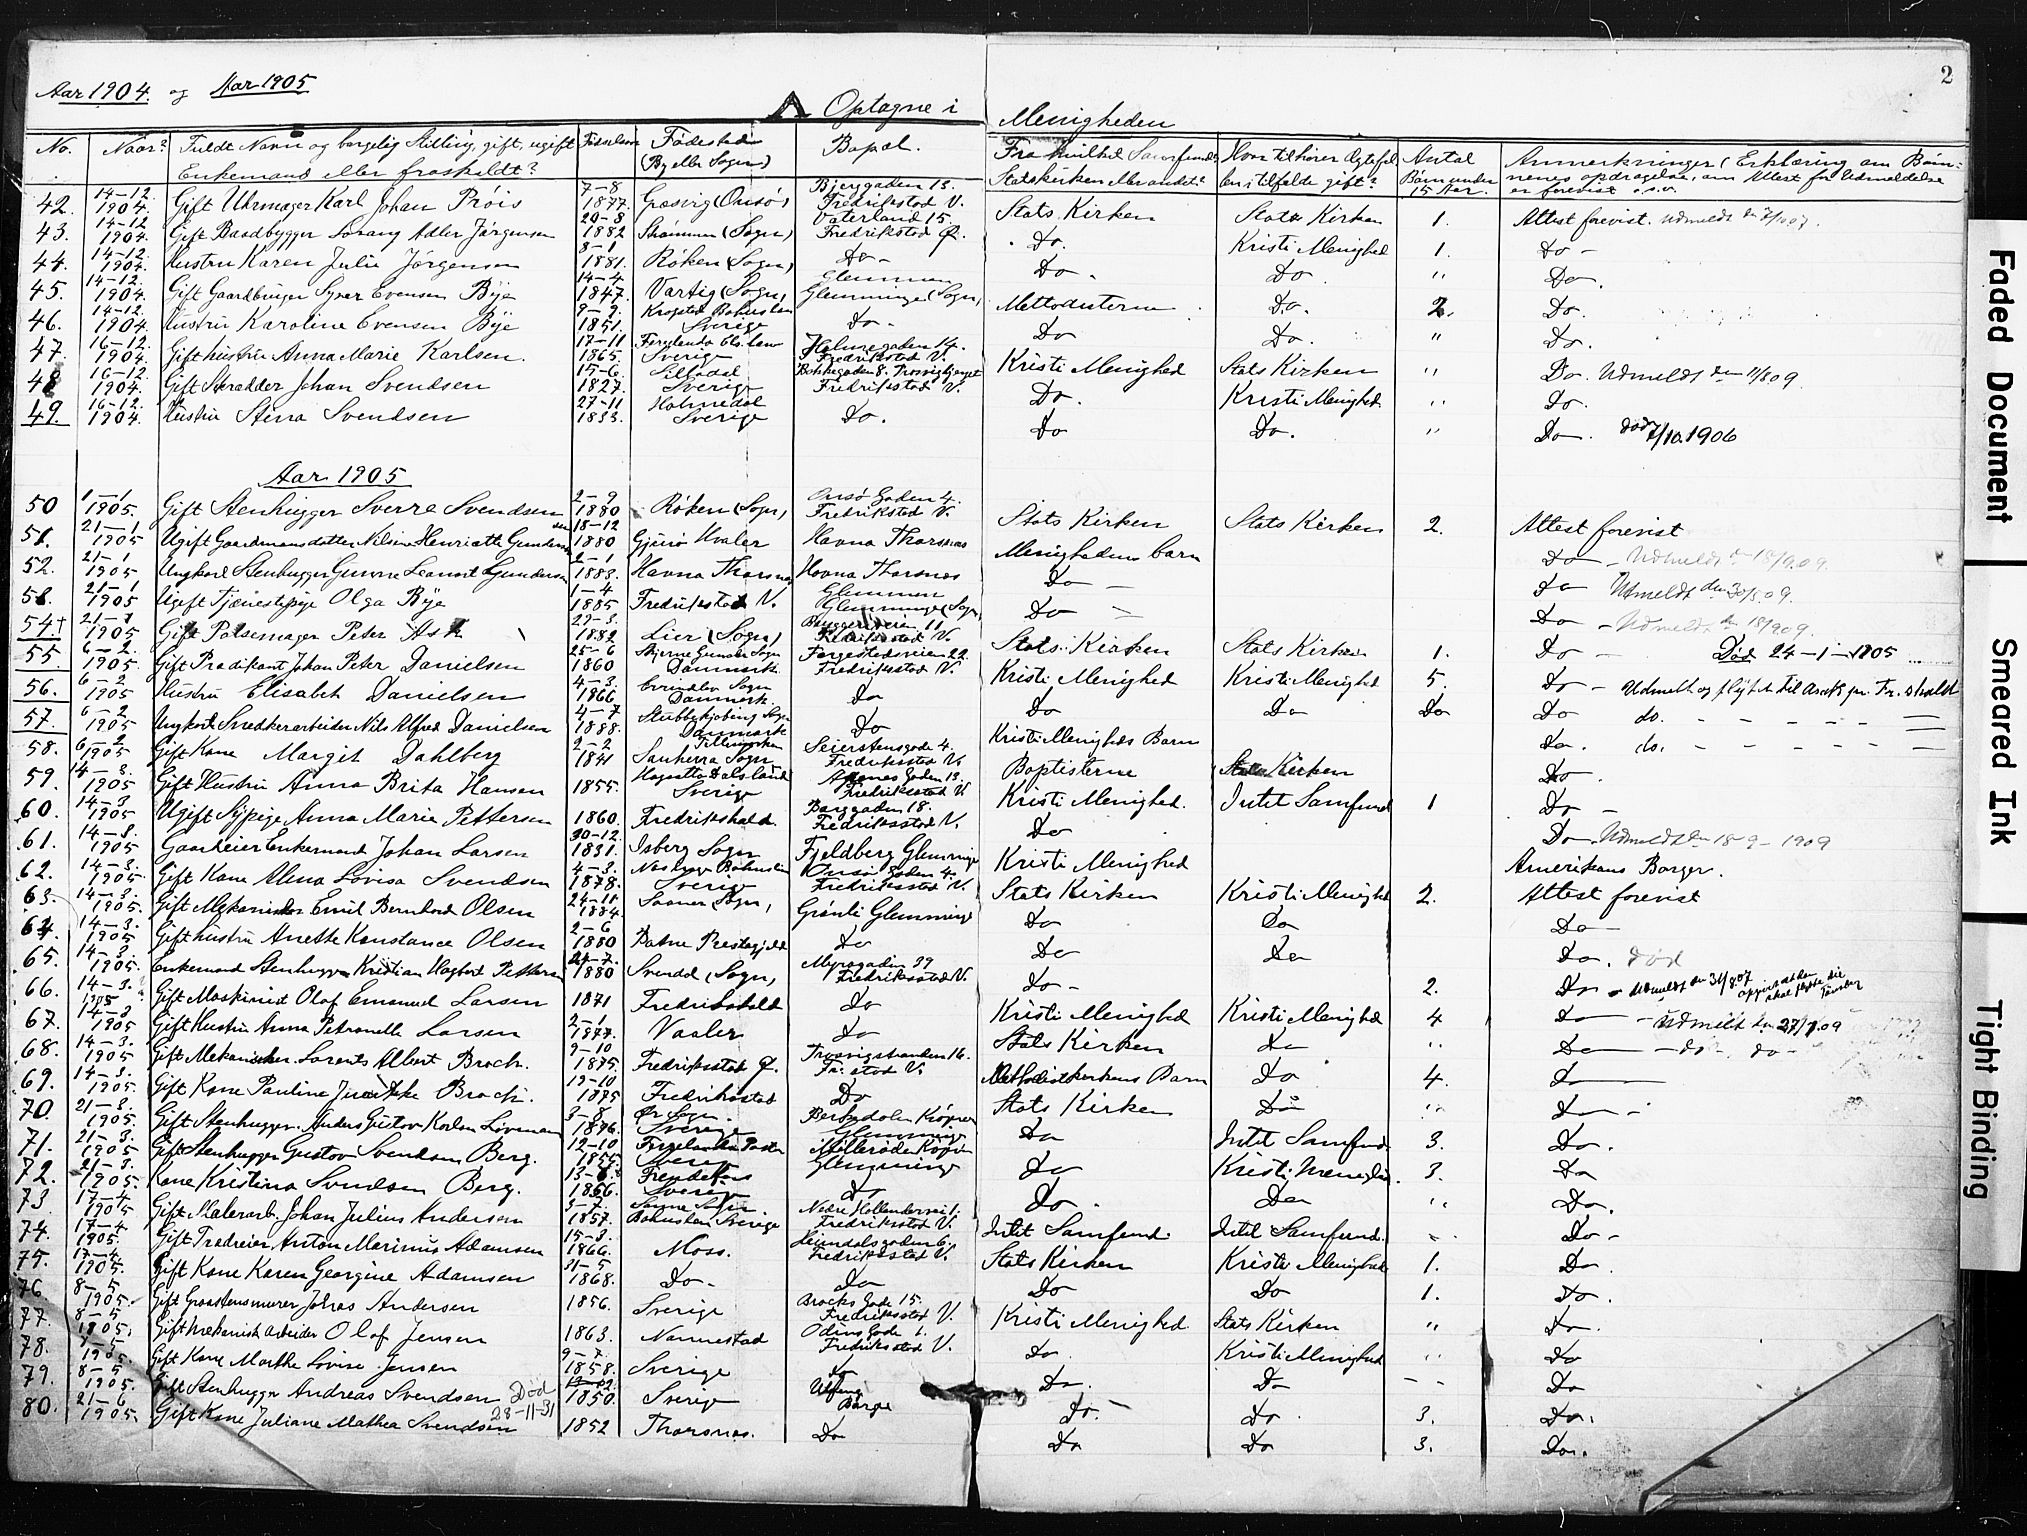 Aar 1904. og Aar 1905
2
A Optagne i Menigheden
No. Naar? Fuldt Navn og borgelig Stilling, gift, ugift Enkemand eller fraskeldt? Fødselsaar Fødested (By eller Sogn) Bopæl. Fra hvilket Samfund Statskirken eller andet? Hvor tilhører Ægtefellen i tilfelde gift? Antal Børn under 15 Aar. Anmerkninger (Erklæring om Børnenes opdragelse, om Attest for Udmeldelse er forevist o.s.v.
42. 14-12. 1904. Gift Uhrmager Karl Johan Prøis 7-8 1877. Græsvig (Onsø) Bjerggaden 13. Fredrikstad V. Stats Kirken Stats Kirken 1. Attest forevist. Udmeldt
43. 14-12 1904. Gift Baadbygger Sorang Adler Jørgensen 20-8 1882 Strømmen (Sogn) Vaterland 15. Fredrikstad Ø. Do. Kristi Menighed 1. Do -
44. 14-12. 1904. Hustru Karen Julie Jørgensen 8-1 1881. Røken (Sogn) Do - Do - Do " Do.
45. 14-12. 1904. Gift Gaardbruger Syver Evensen Bye 14-4 1847. Vartig (Sogn) Glemmen Glemminge (Sogn) Mettodisterne Do. 2. Do.
46. 14-12. 1904. Hustru Karoline Evensen Bye 9-2. 1851. Krogstad Bohuslen Sverige Do - Do Do. " Do.
47. 16-12. 1904. Gift hustru Anna Marie Karlsen. 17-11 1865 Sverige Holmegaden 14. Fredrikstad V. Kristi Menighed Stats Kirken " Do. Udmeldt den 11/8 09.
48 16-12. 1904. Gift Skrædder Johan Svendsen 15-6. 1827. Sverige Fredrikstad V. Do. Kristi Menighed " Do.
49. 16-12. 1904. Hustru Stena Svendsen 27-11 1833. Holmedal Sverige Do. Do Do. " Do. død 7/10.1906
Aar 1905
50 1-1 1905. Gift Stenhugger Sverre Svendsen 2-9 1880 Røken (Sogn) Onsø Gaden 4. Fredrikstad V. Stats Kirken Stats Kirken 2. Attest forevist
51. 21-1 1905 Ugift Gaardmandsdatter Nilsine Henriette Gundersen 18-12 1880 Gjursø Hvaler Havna Thorsnæs Menighedens barn Do - Udmeldt 18/9 09.
52. 21-1 1905 Ungkarl Stenhugger Gunvne Leonart Gundersen 2-1 1883. Havna Thorsnæs Havna Thorsnæs Do - Do Utmeldt den 30/5 09.
53. 21-1 1905 Ugift Tjenestepige Olga Bye 1-4 1885 Fredrikstad V. Glemmen Glemminge (Sogn) Do - Do - Udmeldt
54 † 21-1 1905 Gift Pølsemager Peter Ask 29-3. 1882 Lier (Sogn) Bryggeriveien 11 Fredriksstad V. Stats Kirken Stats Kirken 1. Do - Død 24-1-1905
55. 6-2. 1905. Gift Prædikant Johan Peter Danielsen 25-6 1860 Danmark Fergestedsveien 22. Fredriksstad V. Kristi Menighed Kristi Menighed 5. Do - Udmeldt og flyttet til Arak pr. Fr.shald
56. 6-2 1905 Hustru Elisabet Danielsen 4-3. 1866 Sogn Danmark Do Do Do Do Do do. - - - - -
57. 6-2 1905 Ungkarl Snedkerarbeider Nils Alfred Danielsen 4-7 1888. Stubbekjøbing Sogn Danmark Do Kristi Menigheds Barn Do. do. - - - - -
58. 6-2 1905 Gift Kone Margit Dahlberg 2-2 1841 Sogn Seierstensgade 4. Fredriksstad V. Baptisterne Stats Kirken Do.
59. 14-3. 1905 Gift Hustru Anna Brita Hansen 1855. Dalsland Sverige Agenes Gaden 13. Fredriksstad V. Kristi Menighed. Intet Samfund 1 Do -
60. 14-3 1905 Ugift Sypige Anna Marie Pettersen 1860. Fredrikshald. Borggaden 18. Fredriksstad V. Do Do. Udmeldt den 18-9-1909
61. 14-3. 1905 Gaardeier Enkemand Johan Larsen 30-12. 1831. Isberg Sogn Fjeldberg Glemminge Kristi Menighed Amerikans Borger.
62. 14-3. 1905. Gift Kone Alma Lovisa Svendsen 4-3. 1878. Bohuslen Sverige Onsø Gaden 4. Fredriksstad V. Stats Kirken Kristi Menighed 2. Attest forevist
63. 14-3. 1905. Gift Mekaniker Emil Bernhard Olsen 24-11 1884. Sogn, Grønli Glemminge Do Do Do -
64. 14-3. 1905 Gift hustru Anette Konstance Olsen 2-6 1880 Prestegjeld Do Do Do Do. død
65. 14-3. 1905. Enkemand Stenhugger Kristian Hagbart Pettersen 24-7. 1880 Svendal (Sogn, Myragaden 39 Fredriksstad V. Do - 2. Do - Udmeldt den 31/8 07
66. 14-3. 1905 Gift Maskinist Olaf Emanuel Larsen 1871 Fredrikshald Do Kristi Menighed Kristi Menighed 4 Do - Udmeldt den 27/7.09
67. 14-3 1905 Gift Hustru Anna Petronelle Larsen 2-1 1877. Vaaler Do Stats Kirken Do " Do - do - do -
68. 14-3. 1905 Gift Mekaniker Lorents Albert Broch. 9-10 1875. Fredriksstad Ø. Trosvigstranden 16. Fr.stad V. Methodistkirkens Barn Do 4. Do
69. 14-3. 1905. Gift Kone Pauline Broch. 19-10 1875 Fredriksstad Do Stats Kirken Do " Do -
70. 21-3. 1905. Gift Stenhugger Anders Gustav Karlsen 3-8. 1876. Ør Sogn Sverige Glemminge Do Intet Samfund 3. Do.
71. 21-3. 1905 Gift Stenhugger Gustav Svendsen Berg. 12-10 1855 Sverig Glemminge Do Kristi Menighed 3. Do
72. 21-3. 1905. Kone Kristina Svendsen Berg. 1866. Sverige Do Do. Do " Do.
73 17-4 1905 Gift Malerarb. Johan Julius Andersen 3-7. 1857. Bohuslen Sverige Nedre Hollenderveien 1. Fredriksstad V. Intet Samfund. Intet Samfund. Do -
74. 17-4 1905. Gift Trædreier Anton Marinus Adamsen 15-3. 1866. Moss. Fredriksstad V. Stats Kirken Kristi Menighed 1. Do.
75. 17-4. 1905. Gift Kone Karen Georgine Adamsen 31-5 1868. Do - Do Do Do 1. Do.
76 8-5 1905. Gift Graastensmurer Johas Andersen 1856. Sverige Brocks Gade 15. Fredriksstad V. Kristi Menighed Stats Kirken " Do.
77. 8-5. 1905. Gift mekanisk arbeider Olaf Jensen 1863. Nannestad Odins Gade 1. Fredriksstad V. Do. Kristi Menighed " Do
78. 8-5 1905. Gift Kone Marthe Lovise Jensen 9-7. 1858. Sverige Do Do. Do - - Do
79. 8-5. 1905. Gift Stenhugger Andreas Svendsen Død 28-11-31 1850. Sverige Do. Do 3. Do.
80. 21-6 1905. Gift Kone Juliane Mathea Svendsen 1852 Thorsnæs. Do Do Do 3. Do.
Faded Document
Smeared Ink
Tight Binding